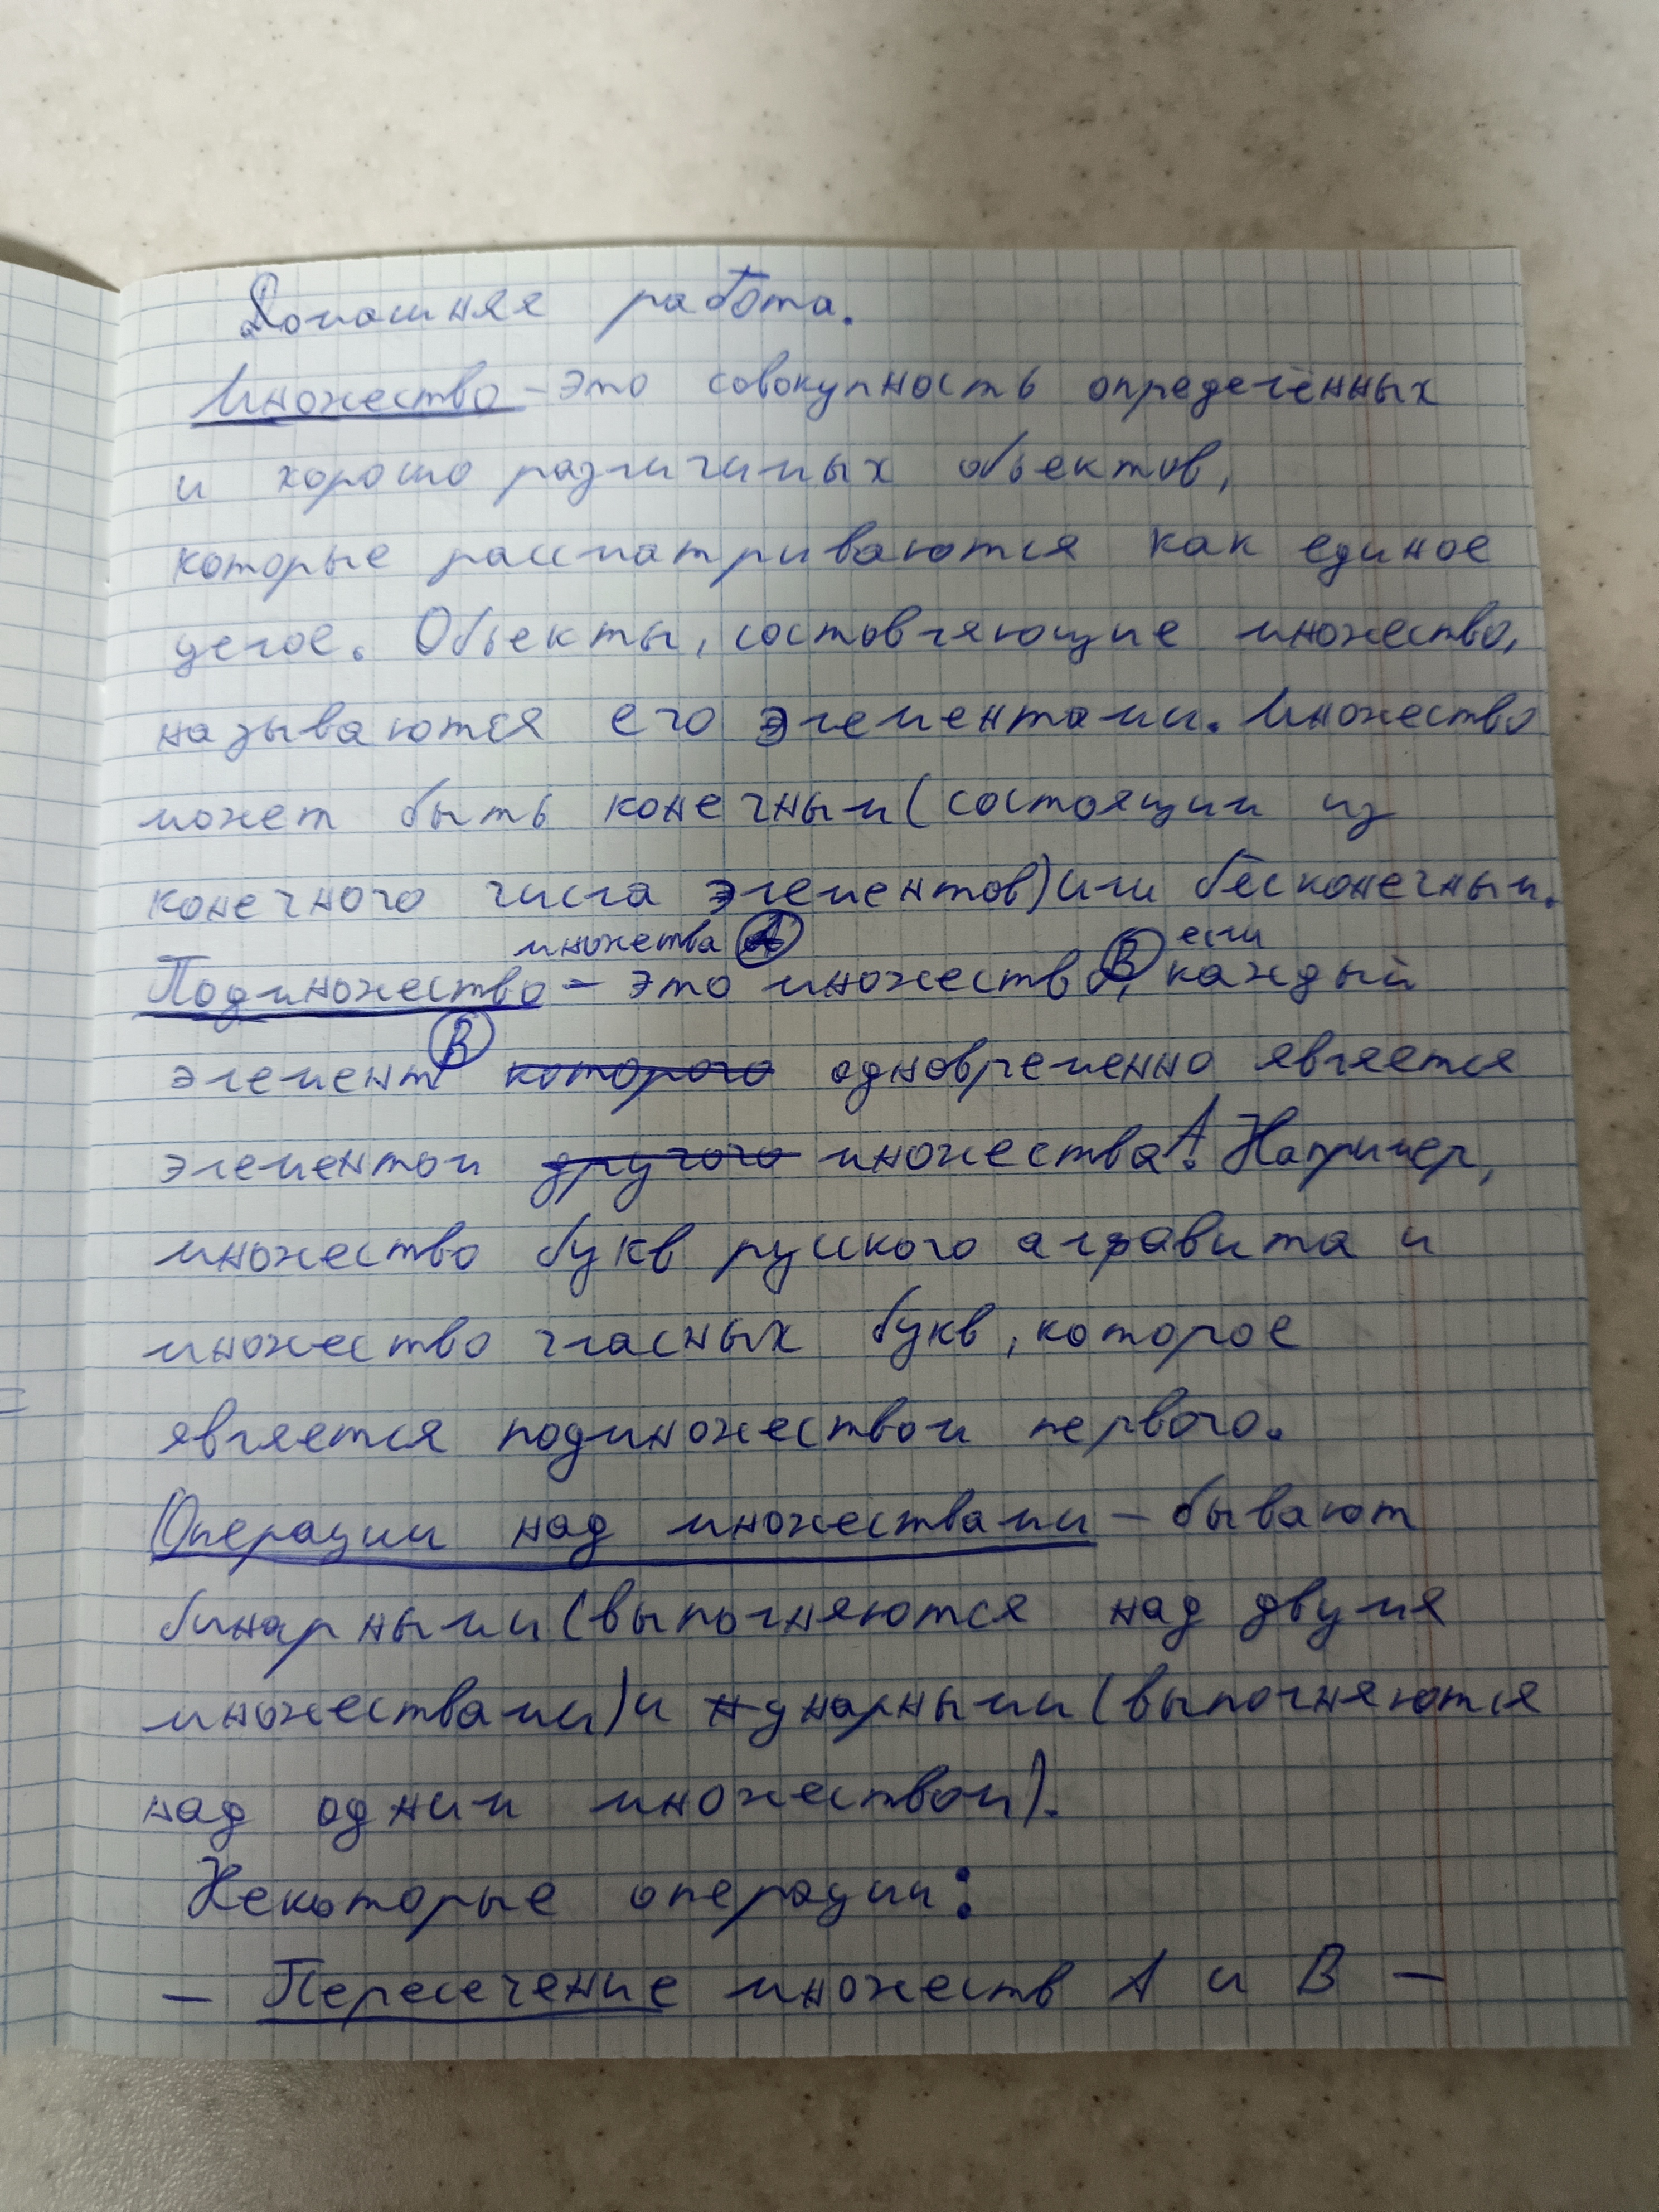 Домашняя работа.
Множество - это совокупность определённых
и хорошо различимых объектов,
которые рассматриваются как единое
целое. Объекты, состовляющие множество,
называются его элементами. Множество
может быть конечным (состоящим из
конечного числа элементов) или бесконечным.
множества А если
Подмножество - это множество В, каждый
элемент В которого одновременно является
элементом другого множества А. Например,
множество букв руского алфавита и
множество гласных букв, которое
является подмножеством первого.
Операции над множествами - бывают
бинарными (выполняются над двумя
множествами) и унарными (выполняются
над одним множеством).
Некоторые операции:
- Пересечение множеств А и В -